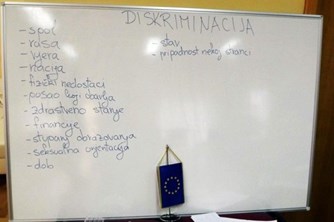 DISKRIMINACIJA
- spol
- rasa
- vjera
- nacija
- fizički nedostaci
- posao koji obavlja
- zdrastveno stanje
- financije
- stupanj obrazovanja
- seksualna orjentacija
- dob
- stav
- pripadnost nekoj stranci